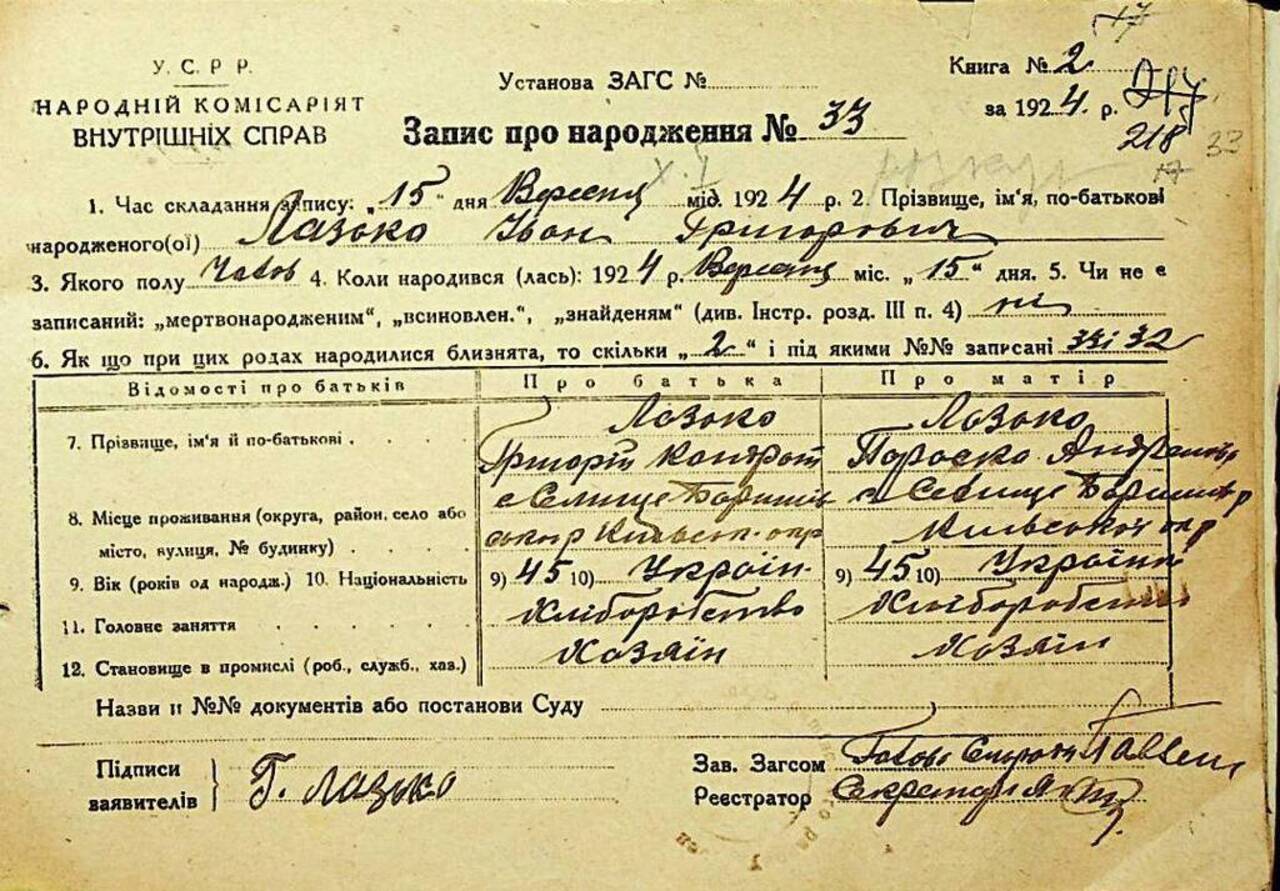 17
У. С. Р. Р.
НАРОДНІЙ КОМІСАРІЯТ
ВНУТРІШНІХ СПРАВ
Установа ЗАГС №
Книга № 2
за 1924 р.
217
218
33
17
Запис про народження № 33
1. Час складання запису: „15“ дня Вересня міс. 1924 р. 2. Прізвище, ім'я, по-батькові
народженого(ої) Лазько Іван Григорович
3. Якого полу Чолов 4. Коли народився (лась): 1924 р. Вересня міс. „15“ дня. 5. Чи не є
записаний: „мертвонародженим“, „всиновлен.“, „знайденям“ (див. Інстр. розд. III п. 4) ні
6. Як що при цих родах народилися близнята, то скільки „2“ і під якими №№ записані 33 і 32
Відомості про батьків Про батька Про матір
7. Прізвище, ім'я й по-батькові Лазько Лазько
Григорій Кондрат Параска
8. Місце проживання (округа, район, село або с Селище Баришів с Селище Баришів р
місто, вулиця, № будинку) ського р Київськ. окр Київської окр
9. Вік (років од народж.) 10. Національність 9) 45 10) Україн. 9) 45 10) Українк
11. Головне заняття Хліборобство Хліборобств
12. Становище в промислі (роб., служб., хаз.) Хозяїн Хозяїн
Назви и №№ документів або постанови Суду
Підписи
заявителів Г. Лазько
Зав. Загсом Голова
Реєстратор Секретар